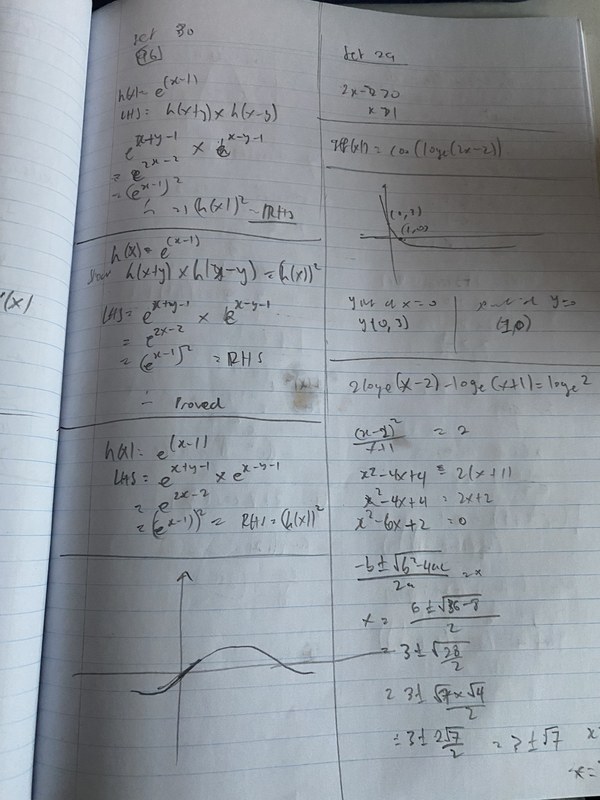 Set 30
h(x) = e^(x-1)
LHS = h(x+y) × h(x-y)
e^x+y-1 × e^x-y-1
= e^2x-2
= (e^x-1)^2
∴ = (h(x))^2 = RHS
h(x) = e^(x-1)
Show h(x+y) × h(x-y) = (h(x))^2
LHS = e^x+y-1 × e^x-y-1
= e^2x-2
= (e^x-1)^2 = RHS
∴ Proved
h(x) = e^(x-1)
LHS = e^x+y-1 × e^x-y-1
= e^2x-2
= (e^x-1))^2 = RHS = (h(x))^2
Set 29
x>1
f(x) = cos(loge(2x-2))
(1,0)
y int at x=0
y(0,3)
y=0
(1,0)
2loge(x-2) - loge(x+1) = loge2
(x-2)^2/x+1 = 2
x^2-4x+4 = 2(x+1)
x^2-4x+4 = 2x+2
x^2-6x+2 = 0
-b±√b^2-4ac/2a = x
x = 6±√36-8/2
= 3±√28/2
= 3±√7×√4/2
= 3±2√7/2 = 3±√7
x=